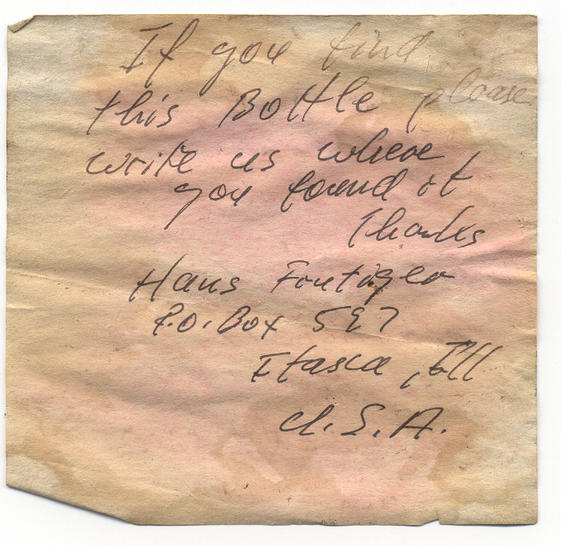 If you find
this Bottle please
write us where
you found it
Thanks
Hans Frutiger
P.O. Box 597
Itasca, Ill
U.S.A.